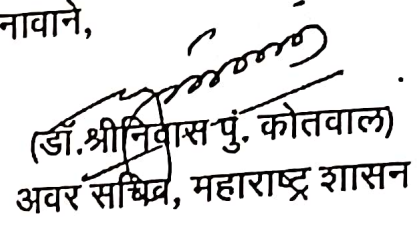 नावाने,
(डॉ.श्रीनिवास पुं. कोतवाल)
अवर सचिव, महाराष्ट्र शासन